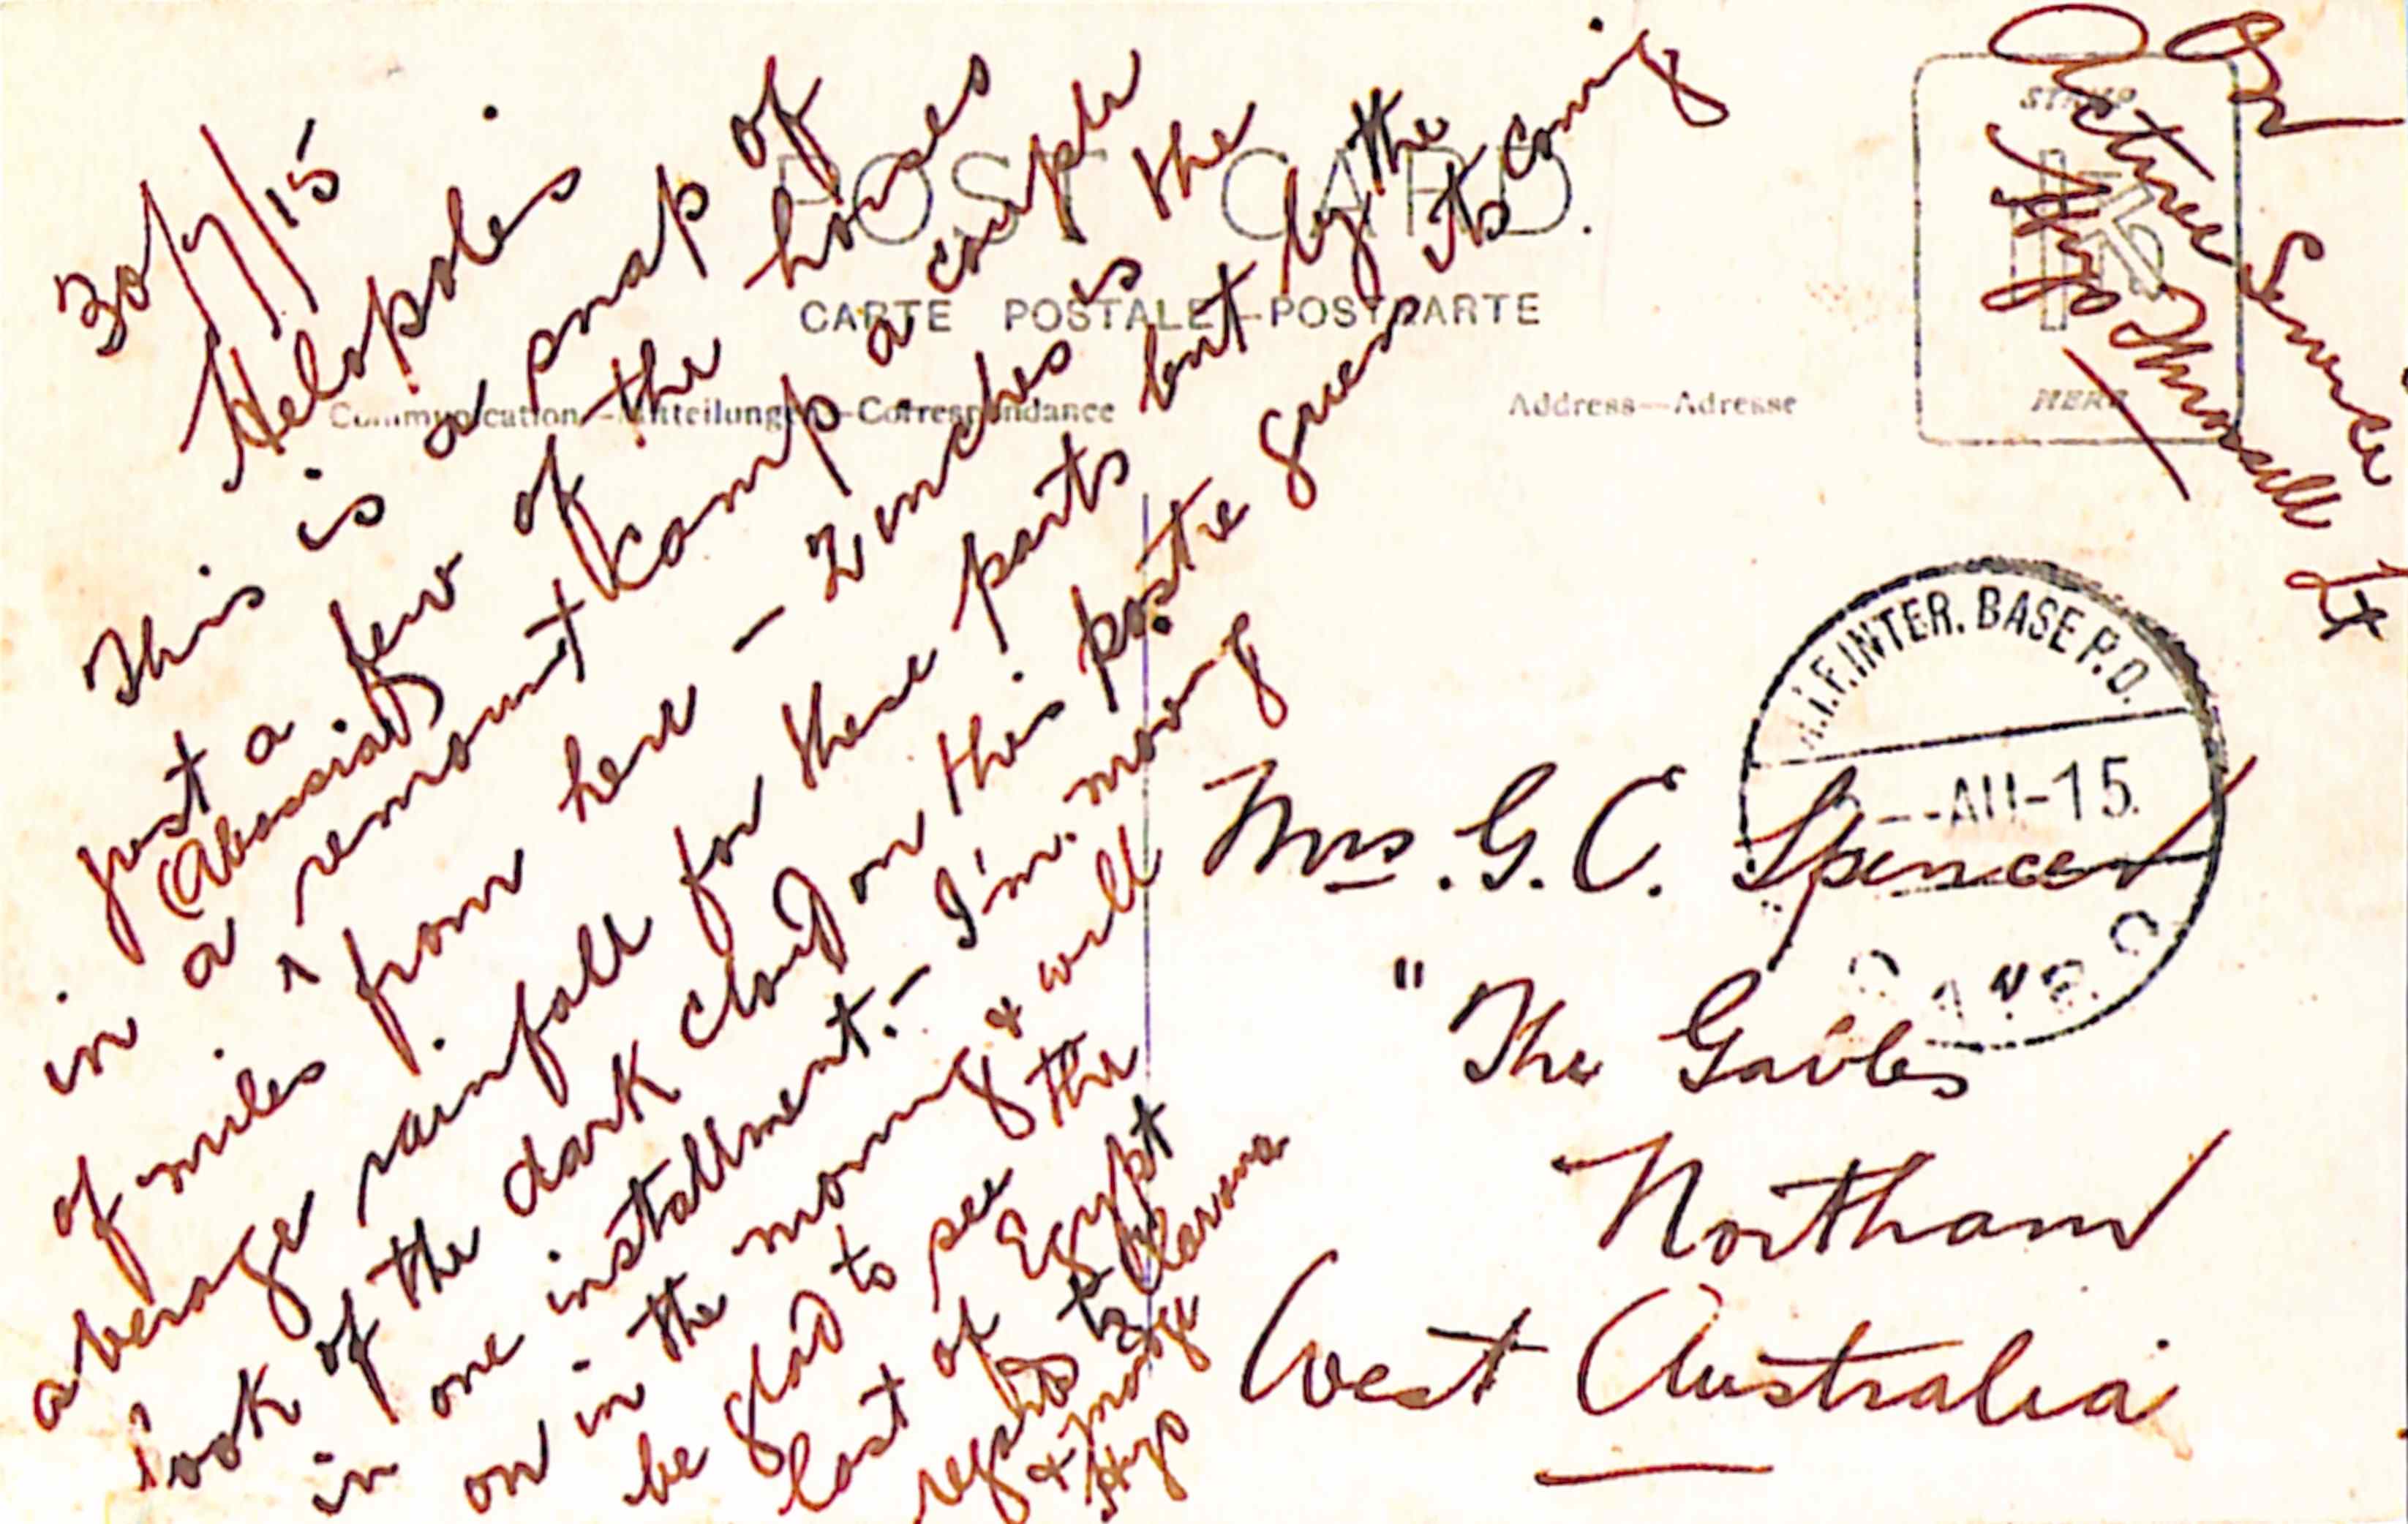 30/7/15
Heliopolis
This is a snap of
just a few of the horses
(Abassia)
in a remount Kamp a couple
of miles from here - 2 inches is the
average rainfall for these parts but by the
look of the dark cloud on this postie guess its coming
in one installment. - I'm moving
on in the morning & will
be glad to see the
last of Egypt
regards to Clarona
& Madge
Hugo
POST CARD.
CARTE POSTALE—POSTKARTE
Communication—Mitteilungen—Correspondance
Address—Adresse
STAMP
HERE
On
Active Service
Hugo Throssell Lt
A.I.F. INTER. BASE P.O.
--AU-15.
Mrs. G. C. Spencer
"The Gables
Northam
West Australia